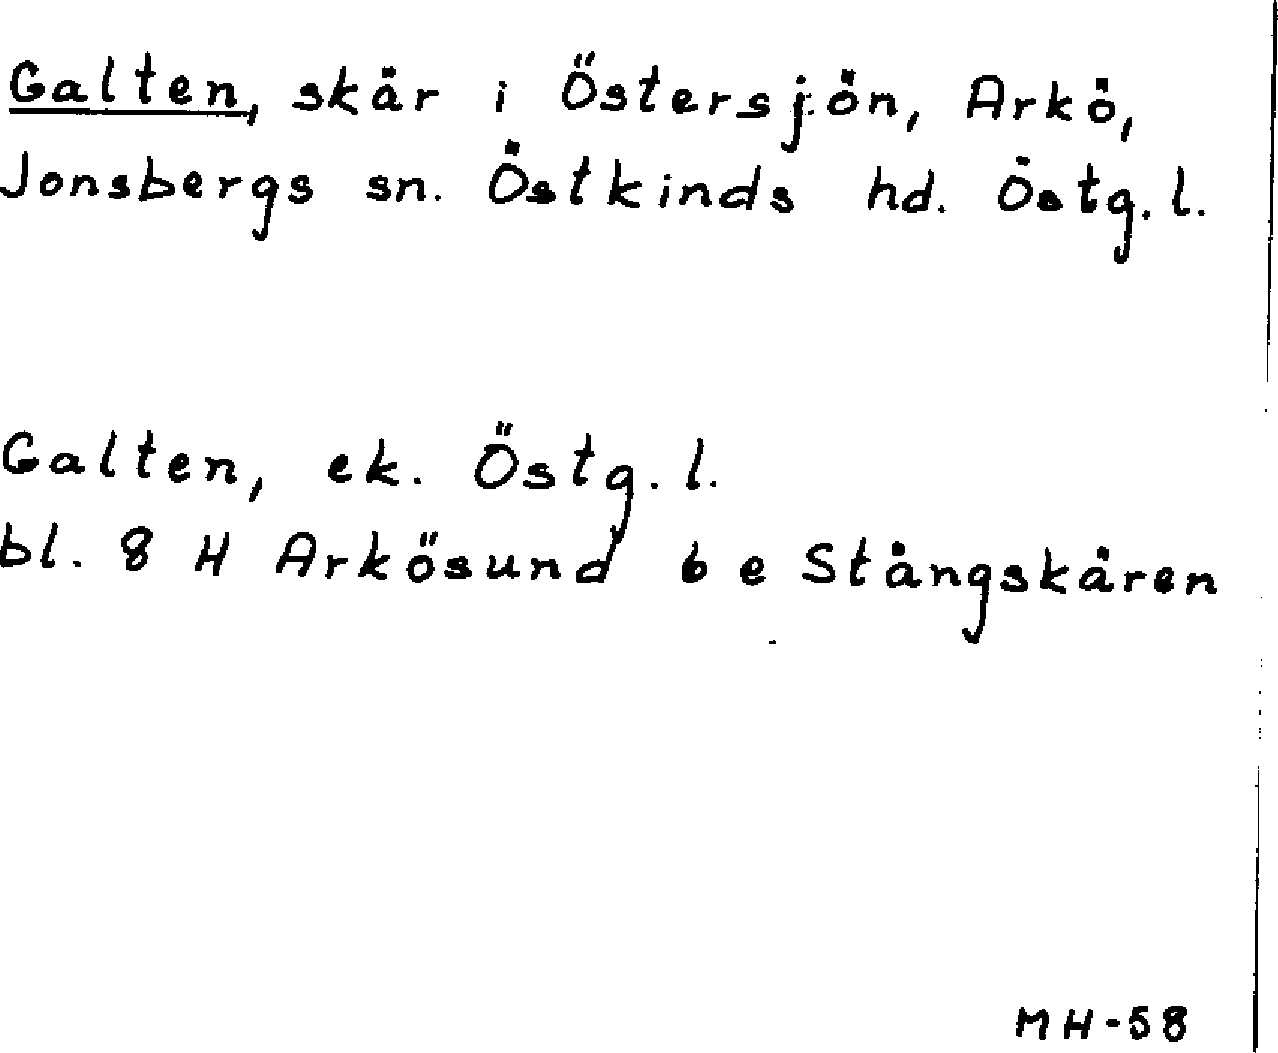 Galten, skär i Östersjön, Arkö,
Jonsbergs sn. Östkinds hd. Östg. l.
Galten, ek. Östg. l.
bl. 8 H Arkösund 6 e Stångskären
MH-58